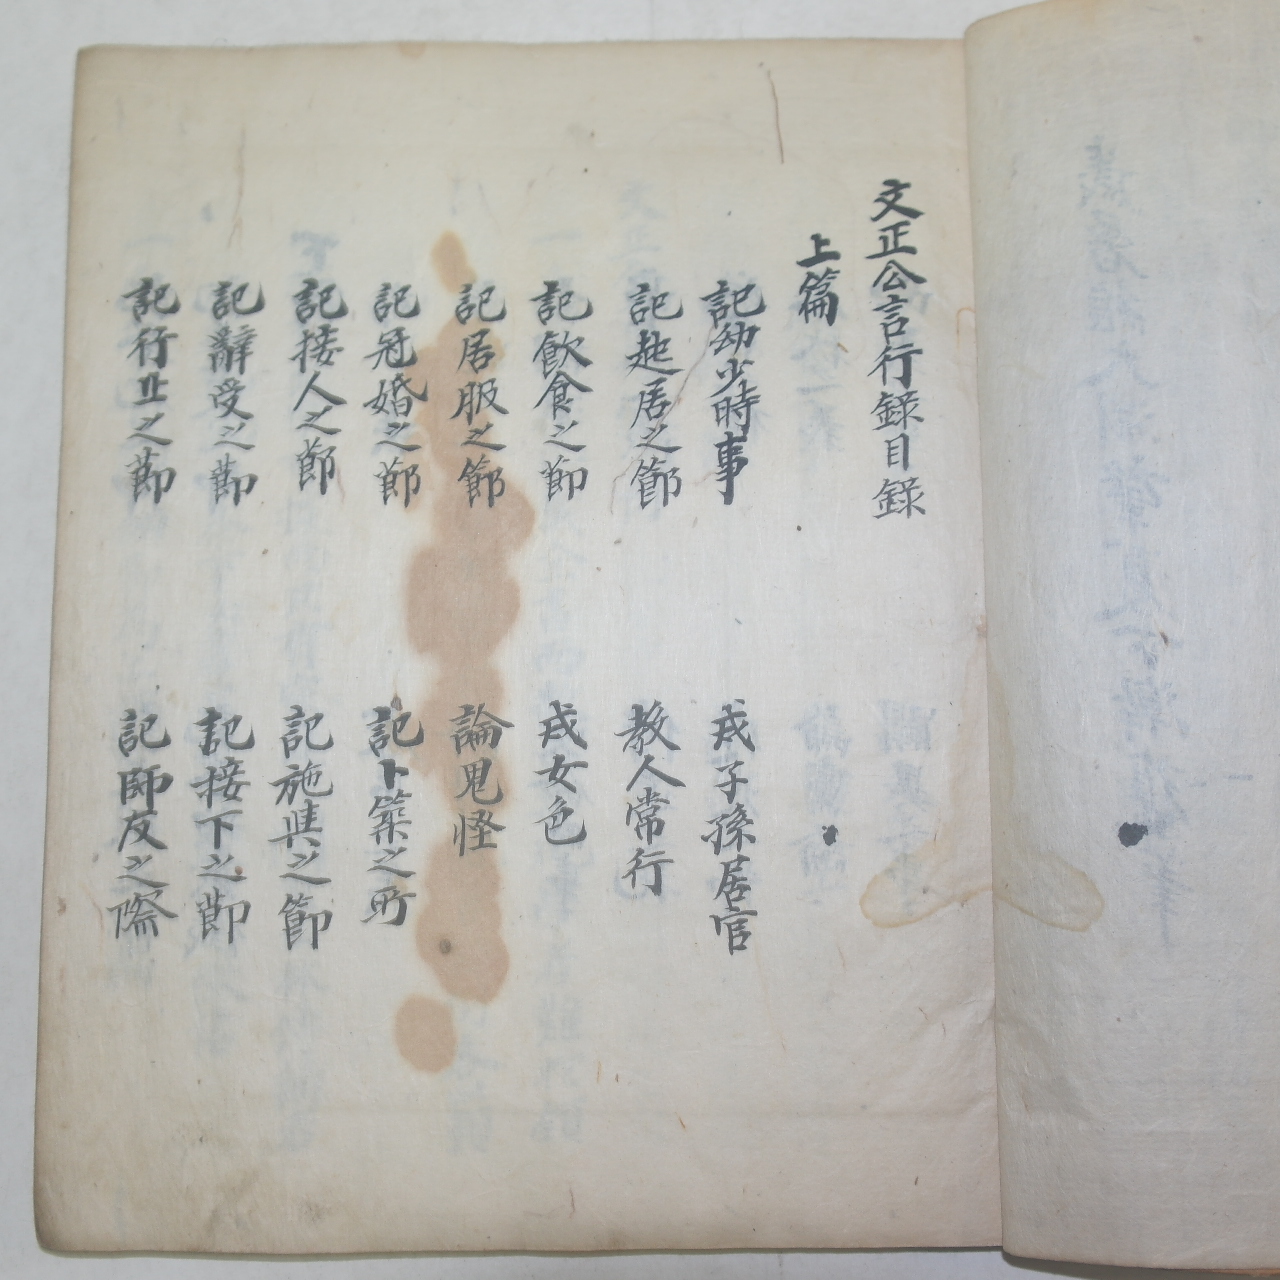 文正公言行錄目錄
上篇
記幼少時事 戒子孫居官
記起居之節 教人常行
記飮食之節 戒女色
記居服之節 論鬼怪
記冠婚之節 記卜築之所
記接人之節 記施與之節
記辭受之節 記接下之節
記行止之節 記師友之際